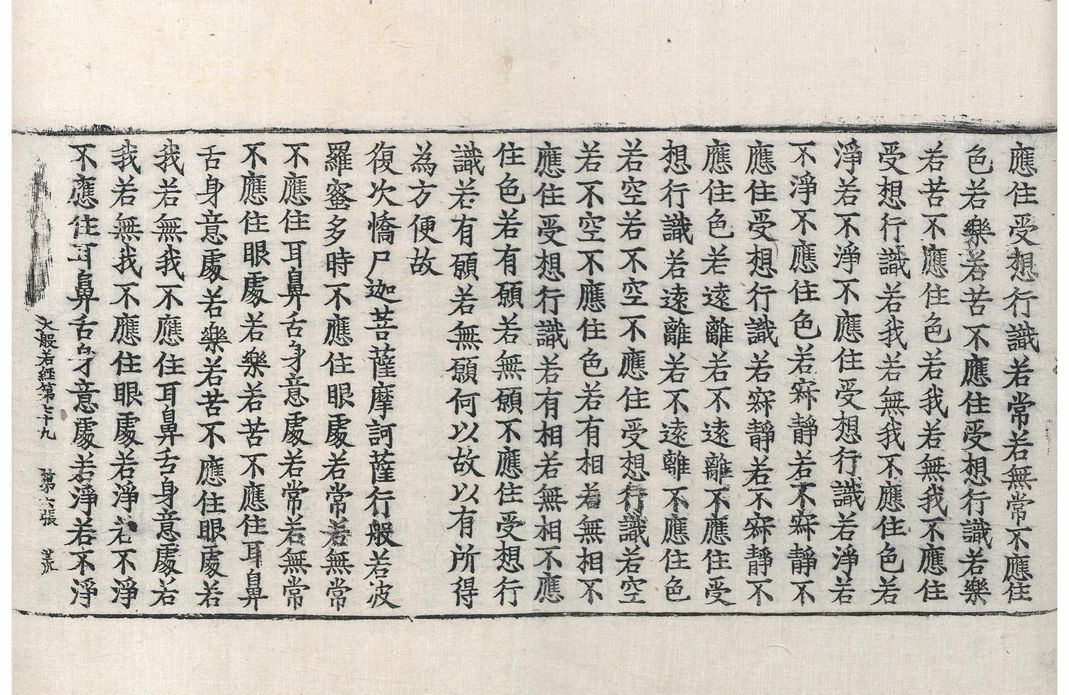 應住受想行識若常若無常不應住
色若樂若苦不應住受想行識若樂
若苦不應住色若我若無我不應住
受想行識若我若無我不應住色若
淨若不淨不應住受想行識若淨若
不淨不應住色若寂靜若不寂靜不
應住受想行識若寂靜若不寂靜不
應住色若遠離若不遠離不應住受
想行識若遠離若不遠離不應住色
若空若不空不應住受想行識若空
若不空不應住色若有相若無相不
應住受想行識若有相若無相不應
住色若有願若無願不應住受想行
識若有願若無願何以故以有所得
為方便故
復次憍尸迦菩薩摩訶薩行般若波
羅蜜多時不應住眼處若常若無常
不應住耳鼻舌身意處若常若無常
不應住眼處若樂若苦不應住耳鼻
舌身意處若樂若苦不應住眼處若
我若無我不應住耳鼻舌身意處若
我若無我不應住眼處若淨若不淨
不應住耳鼻舌身意處若淨若不淨
大般若經第七十九 第六張 荒